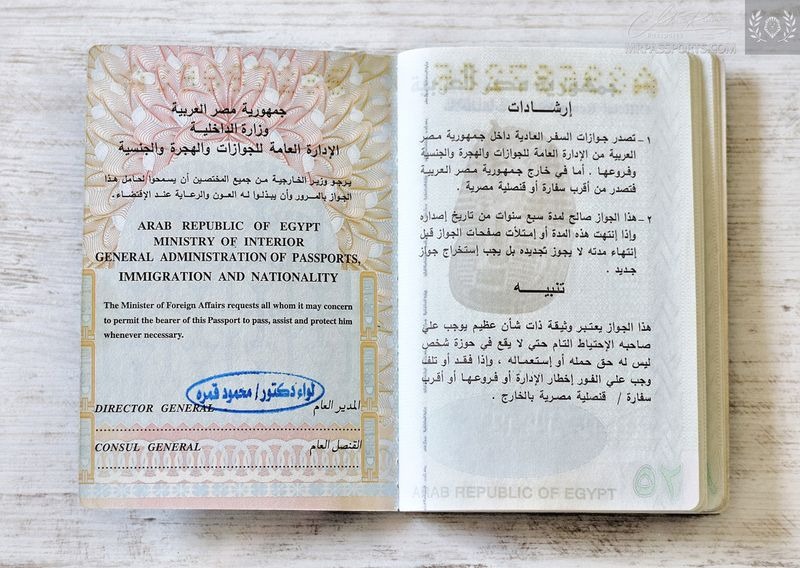 MRPASSPORTS.COM
جمهورية مصر العربية
وزارة الداخلية
الإدارة العامة للجوازات والهجرة والجنسية
يرجو وزير الخارجية من جميع المختصين أن يسمحوا لحامل هذا
الجواز بالمرور وأن يبذلوا له العون والرعاية عند الإقتضاء.
ARAB REPUBLIC OF EGYPT
MINISTRY OF INTERIOR
GENERAL ADMINISTRATION OF PASSPORTS,
IMMIGRATION AND NATIONALITY
The Minister of Foreign Affairs requests all whom it may concern
to permit the bearer of this Passport to pass, assist and protect him
whenever necessary.
لواء دكتور/ محمود قمره
DIRECTOR GENERAL المدير العام
CONSUL GENERAL القنصل العام
إرشادات
١ - تصدر جوازات السفر العادية داخل جمهورية مصر
العربية من الإدارة العامة للجوازات والهجرة والجنسية
وفروعها . أما في خارج جمهورية مصر العربية
فتصدر من أقرب سفارة أو قنصلية مصرية .
٢ - هذا الجواز صالح لمدة سبع سنوات من تاريخ إصداره
وإذا إنتهت هذه المدة أو إمتلأت صفحات الجواز قبل
إنتهاء مدته لا يجوز تجديده بل يجب إستخراج جواز
جديد .
تنبيه
هذا الجواز يعتبر وثيقة ذات شأن عظيم يوجب علي
صاحبه الإحتياط التام حتي لا يقع في حوزة شخص
ليس له حق حمله أو إستعماله ، وإذا فقد أو تلف
وجب علي الفور إخطار الإدارة أو فروعها أو أقرب
سفارة / قنصلية مصرية بالخارج .
ARAB REPUBLIC OF EGYPT
٥٢